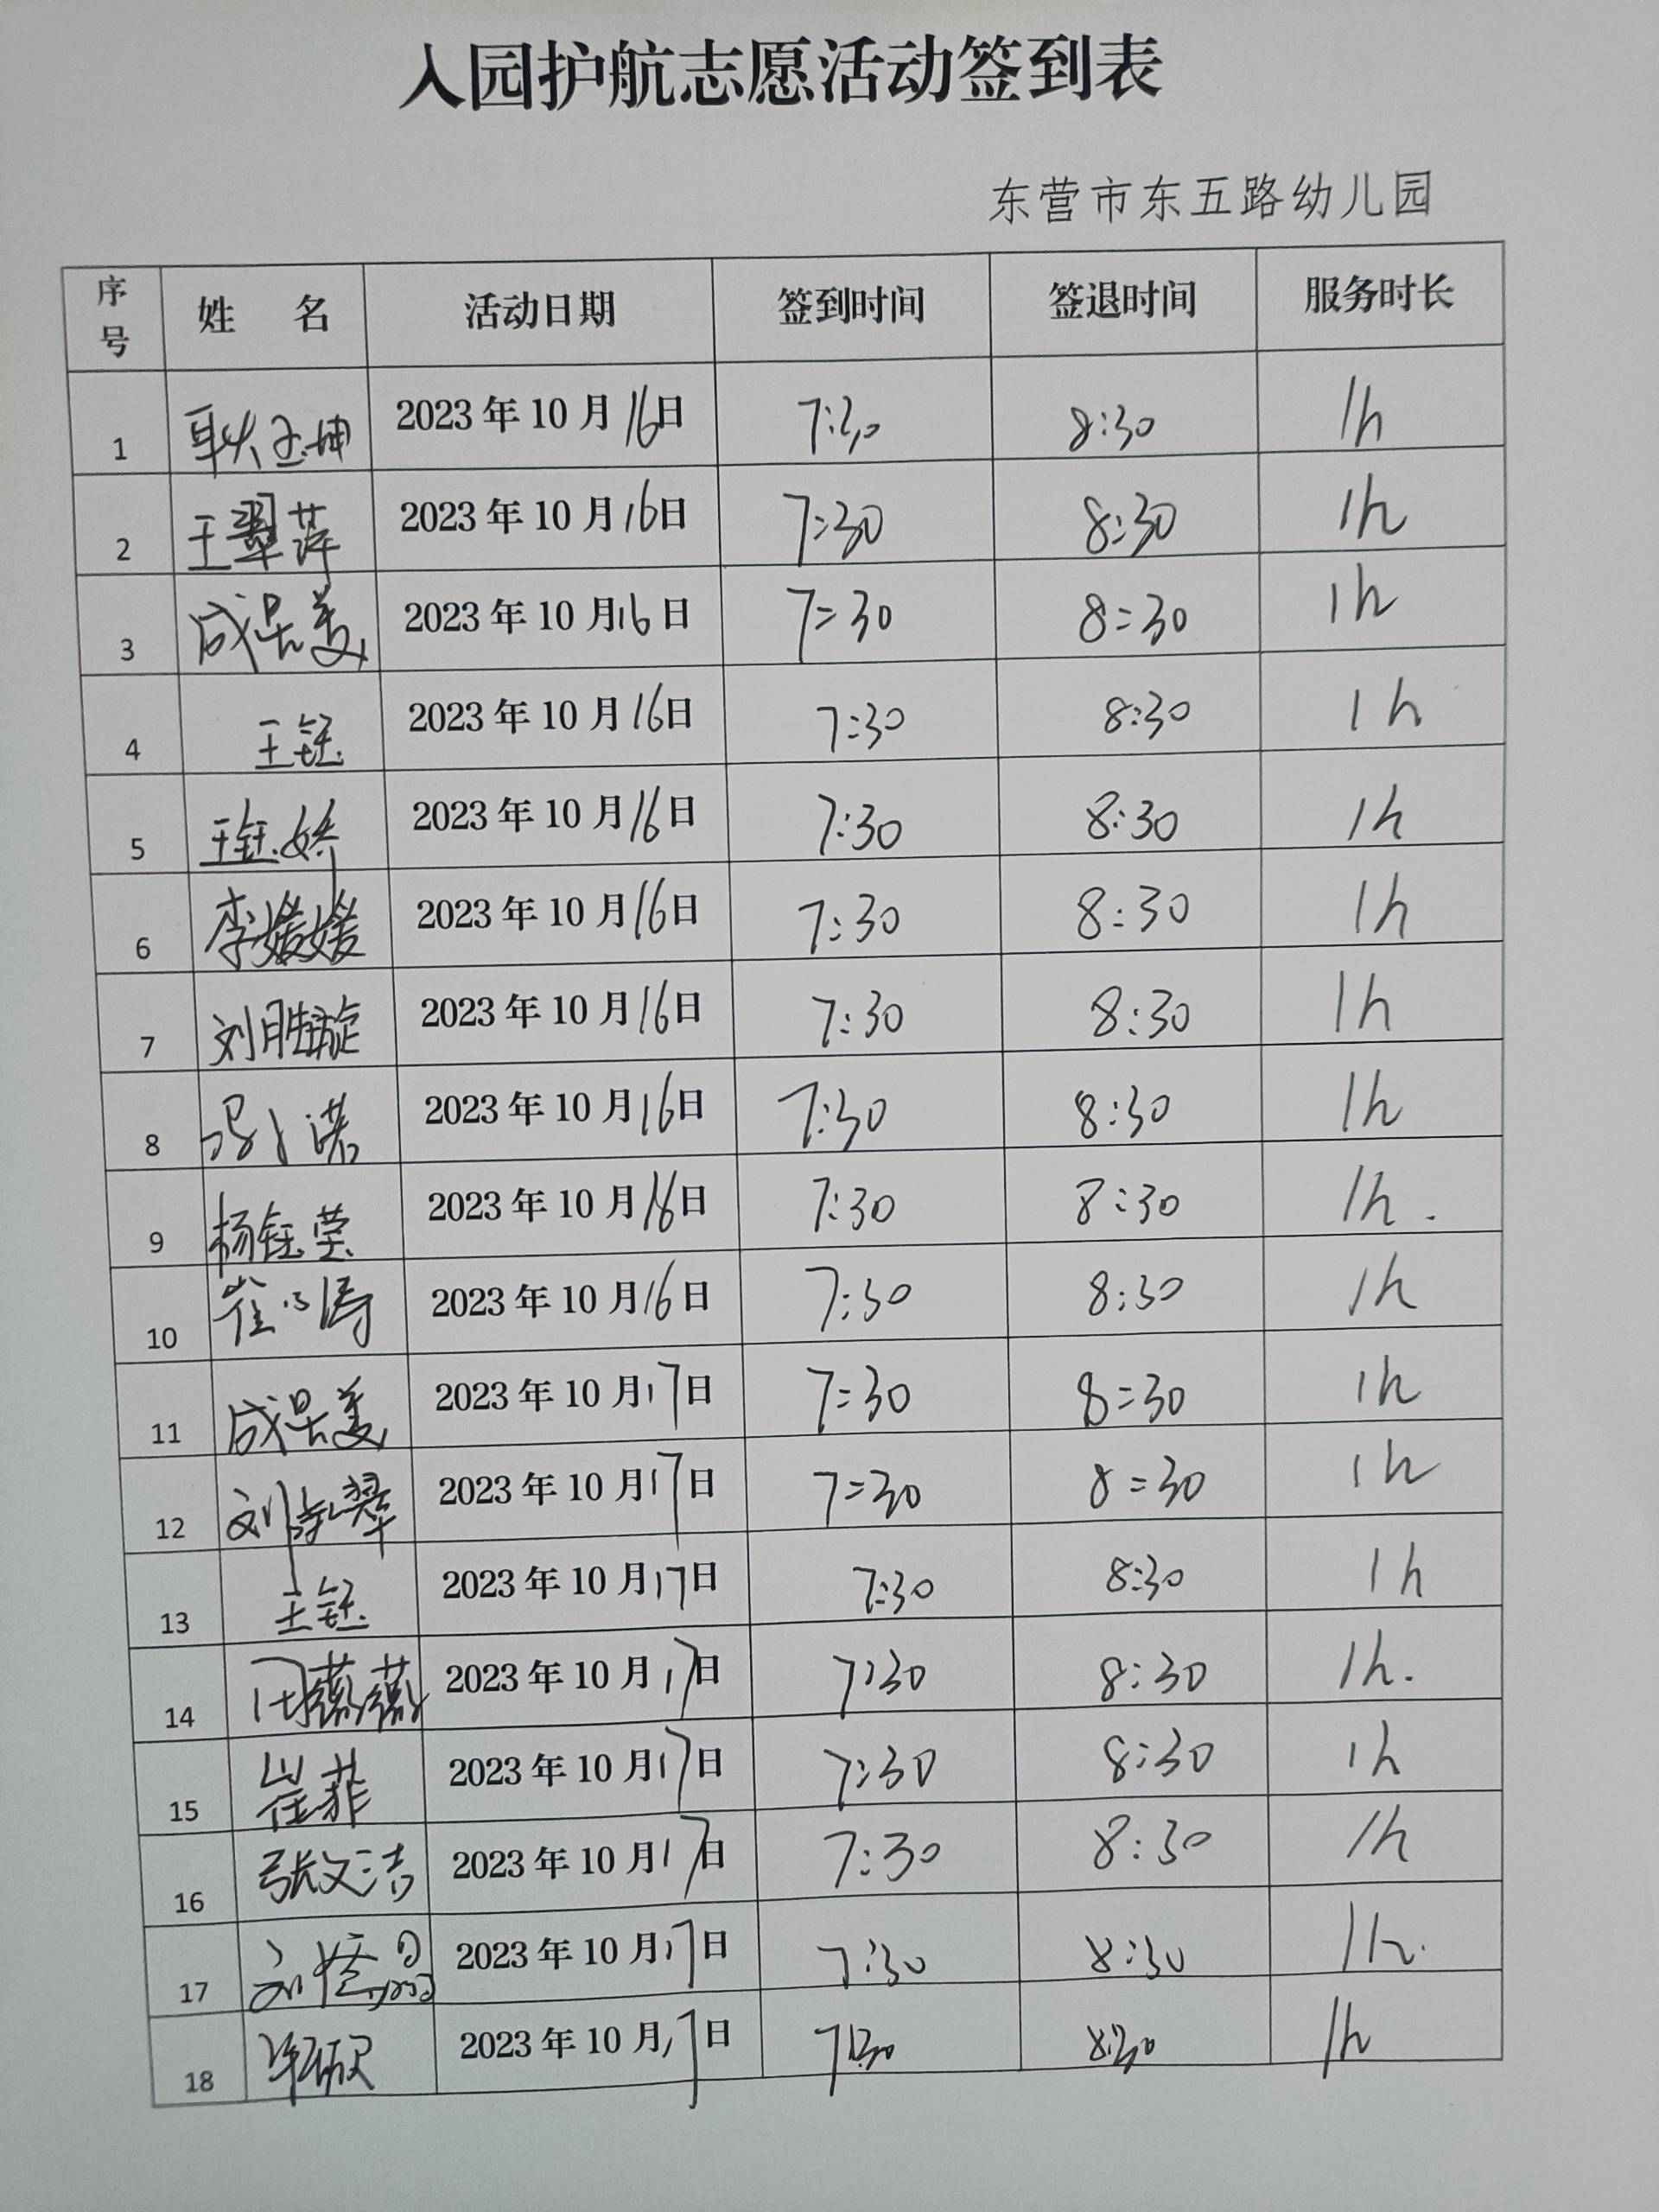 入园护航志愿活动签到表
东营市东五路幼儿园
序号 姓 名 活动日期 签到时间 签退时间 服务时长
1 耿玉坤 2023年10月16日 7:30 8:30 1h
2 王翠萍 2023年10月16日 7:30 8:30 1h
3 成昊美 2023年10月16日 7:30 8:30 1h
4 王钰 2023年10月16日 7:30 8:30 1h
5 王钰娇 2023年10月16日 7:30 8:30 1h
6 李媛媛 2023年10月16日 7:30 8:30 1h
7 刘胜旋 2023年10月16日 7:30 8:30 1h
8 2023年10月16日 7:30 8:30 1h
9 杨钰莹 2023年10月16日 7:30 8:30 1h.
10 崔 涛 2023年10月16日 7:30 8:30 1h
11 成昊美 2023年10月17日 7:30 8:30 1h
12 刘 翠 2023年10月17日 7:30 8:30 1h
13 王钰 2023年10月17日 7:30 8:30 1h
14 闫薇薇 2023年10月17日 7:30 8:30 1h.
15 崔菲 2023年10月17日 7:30 8:30 1h
16 张文洁 2023年10月17日 7:30 8:30 1h
17 2023年10月17日 7:30 8:30 1h.
18 2023年10月17日 7:30 8:30 1h